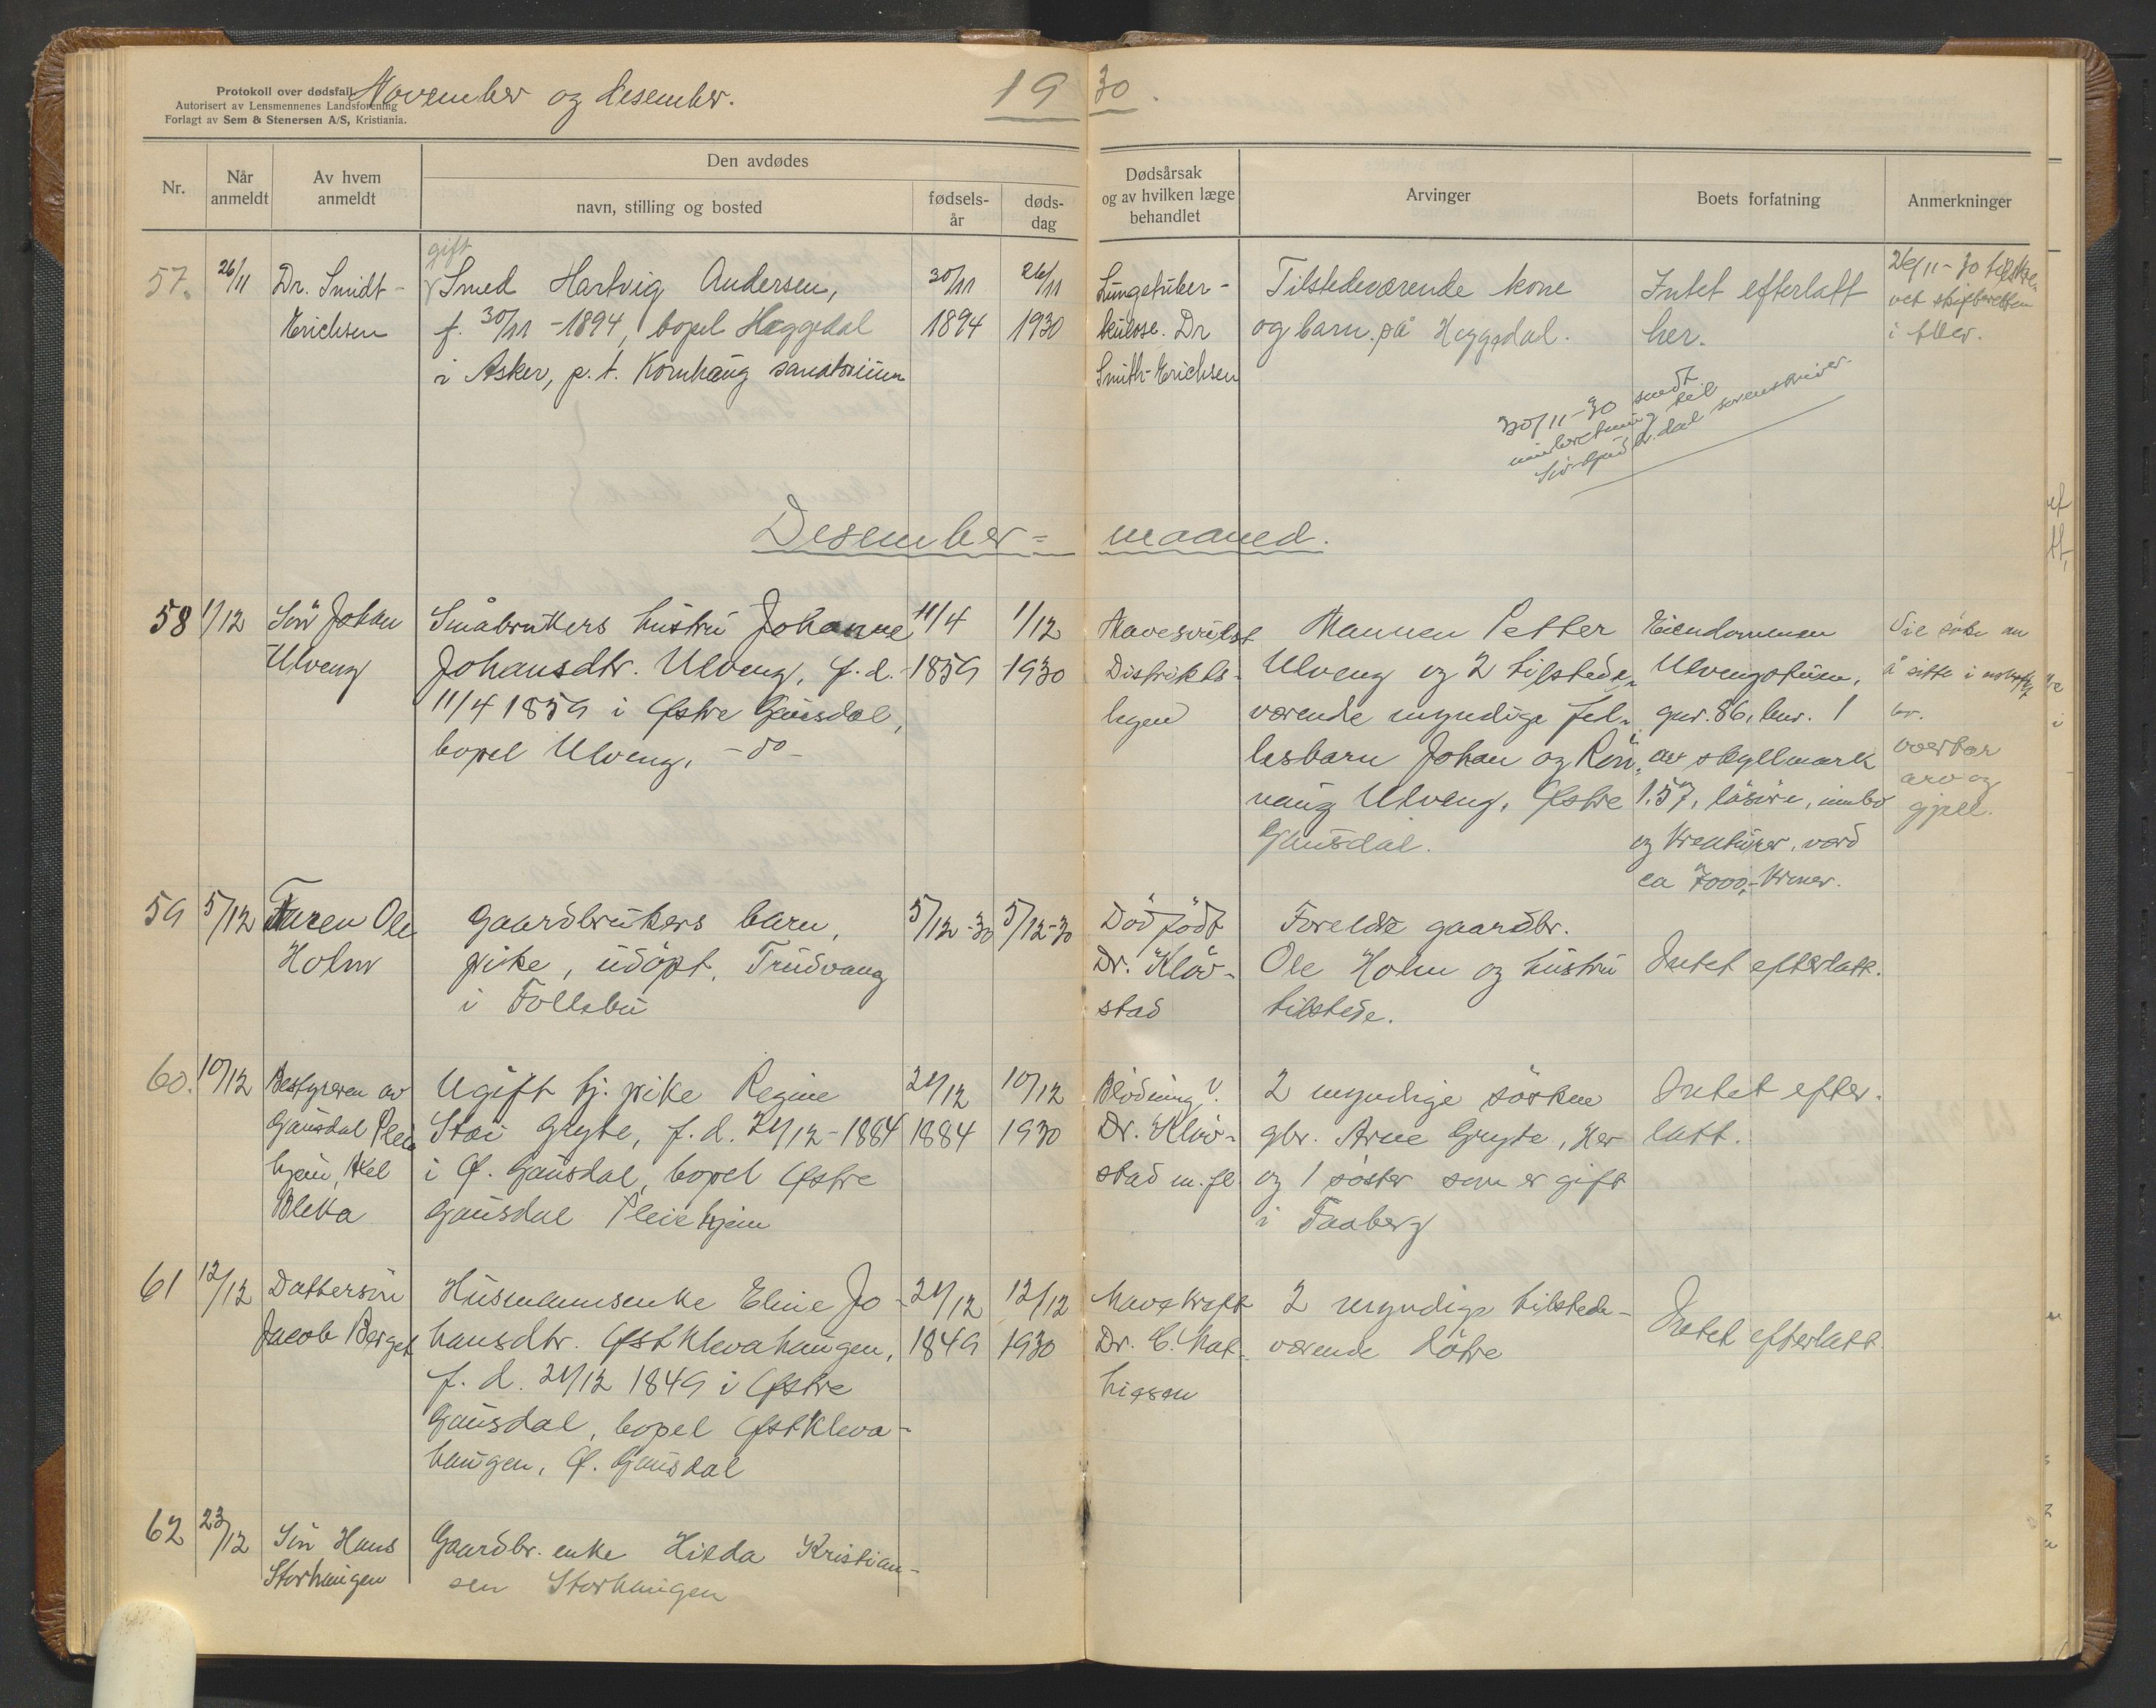 Protokoll over dødsfall
Autorisert av Lensmennenes Landsforening
Forlagt av Sem & Stenersen A/S, Kristiania.
November og Desember.
19 30.
Nr.
Når anmeldt
Av hvem anmeldt
Den avdødes
navn, stilling og bosted
fødsels-år
døds-dag
Dødsårsak og av hvilken læge behandlet
Arvinger
Boets forfatning
Anmerkninger
57.
26/11
Dr. Smidt-
Erichsen
gift
Smed Hartvig Andersen,
f. 30/11-1894, bopel Heggedal
i Asker, p.t. Kornhaug sanatorium
30/11
1894
26/11
1930
Lungetuber-
kulose. Dr
Smith-Erichsen
Tilstedeværende kone
og barn på Heggedal.
Intet efterlatt
her.
26/11-30
ved skifteretten
i
30/11-30 sendt
underretning til
Sör-Gudbr.dal sorenskriver.
Desember=maaned.
58
1/12
Sön Johan
Ulveng
Småbrukers hustru Johanne
Johansdtr. Ulveng, f.d.
11/4 1859 i Østre Gausdal,
bopel Ulveng, -do-
11/4
1859
1/12
1930
Mavesvulst
Distrikts-
legen
Mannen Petter
Ulveng og 2 tilstede-
værende myndige fel-
lesbarn Johan og Rön-
naug Ulveng, Østre
Gausdal.
Eiendommen
Ulvengstuen,
gnr. 86, bnr. 1
av skyllmark
1.57, lösöre, innbo
og kreaturer, verd
ca 7000,- kroner.
Vil söke om
å sitte i uskiftet
bo.
arv og
gjeld.
59
5/12
Faren Ole
Holm
Gaardbrukers barn,
pike, udöpt, Trudvang
i Follebu
5/12-30
5/12-30
Dödfödt
Dr. Klöv-
stad
Foreldre gaardbr.
Ole Holm og hustru
tilstede.
Intet efterlatt.
60.
10/12
Bestyreren av
Gausdal Pleie
hjem, Axel
Blekka
Ugift tj. pike Regine
Stai Gryte, f.d. 21/12-1884
i Ø. Gausdal, bopel Østre
Gausdal Pleiehjem
21/12
1884
10/12
1930
Blödning v.
Dr. Klöv-
stad m.fl.
2 myndige söskne
gbr. Arne Gryte, Her
og 1 söster som er gift
i Faaberg
Intet efter-
latt.
61
12/12
Dattersön
Jacob Berget
Husmannsenke Eline Jo-
hansdtr. Østklevahaugen,
f.d. 21/12 1849 i Østre
Gausdal, bopel Østkleva-
haugen, Ø. Gausdal
21/12
1849
12/12
1930
Mavekreft
Dr. C. Mat-
hiesen
2 myndige tilstede-
værende dötre
Intet efterlatt.
62
23/12
Sön Hans
Storhaugen
Gaardbr. enke Hilda Kristian-
sen Storhaugen